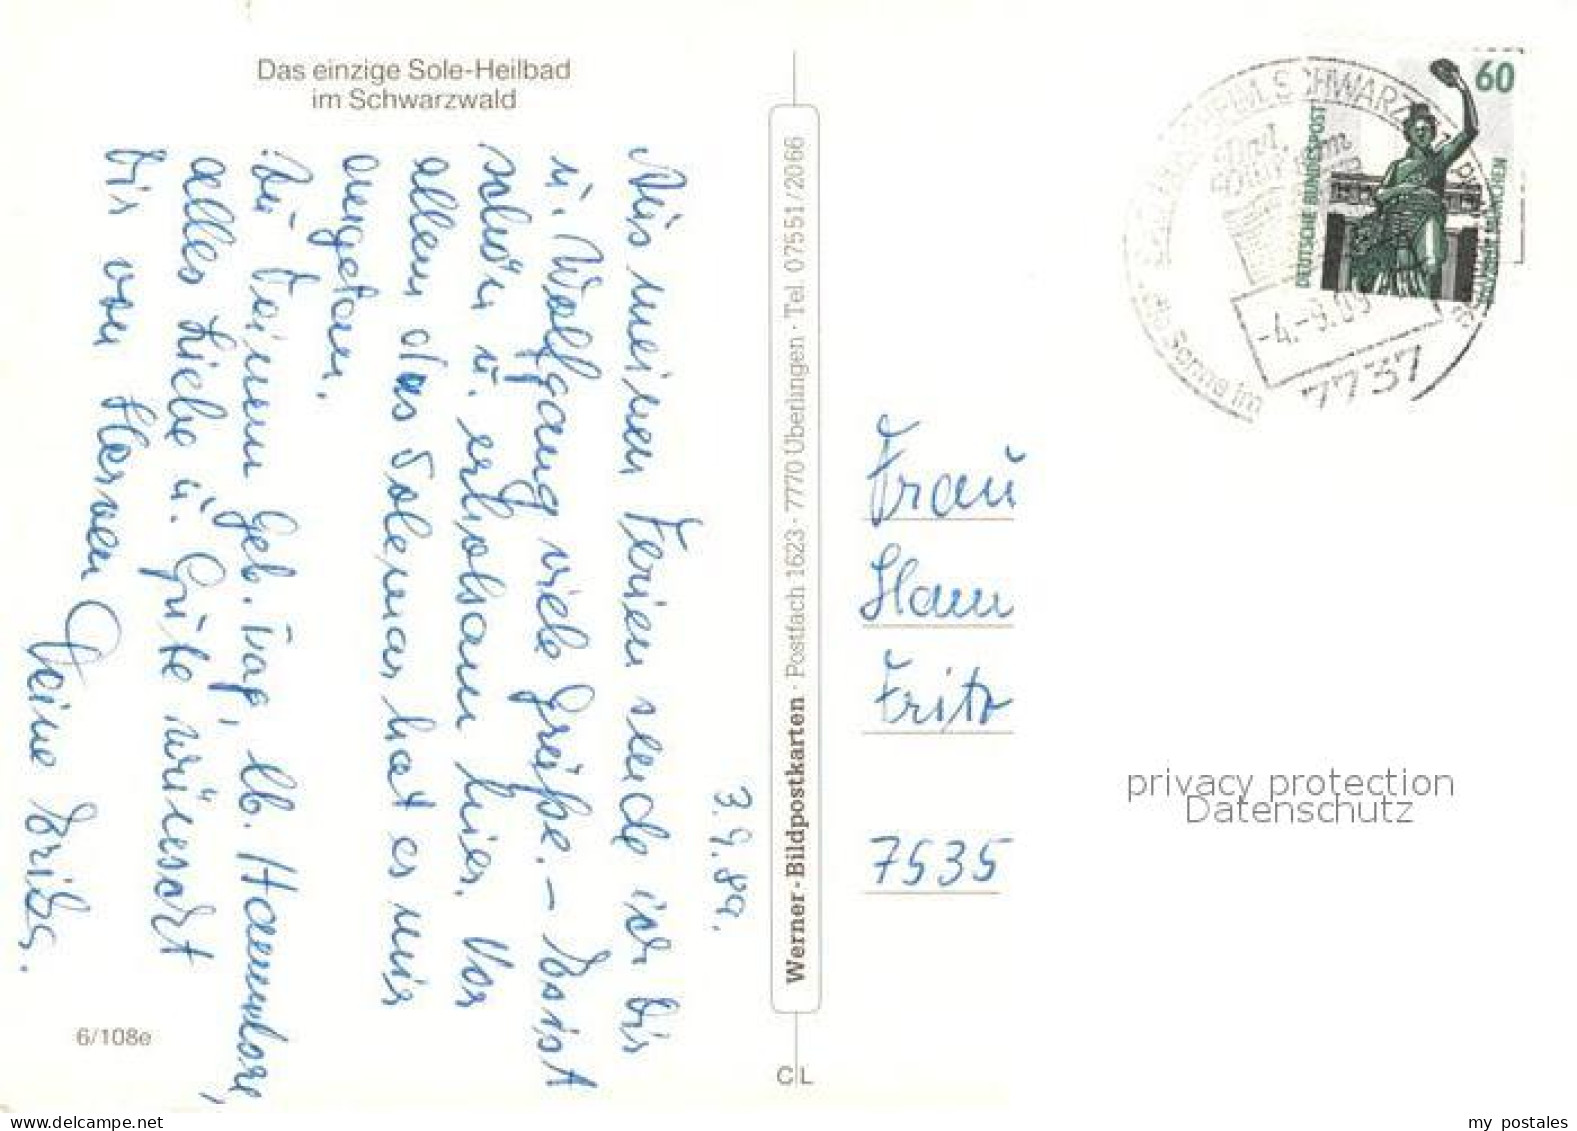 Das einzige Sole-Heilbad
im Schwarzwald
3.9.89.
Aus meinen Ferien sende ich Dir
u. Wolfgang viele Grüße. – Es ist
schön u. erholsam hier. Vor
allem das Solemar hat es mir
angetan.
Zu Deinem Geb. Tag, lb. Hannelore,
alles Liebe u. Gute wünscht
Dir von Herzen
Deine Erika.
6/108e
Werner-Bildpostkarten · Postfach 1623 · 7770 Überlingen · Tel. 07551/2066
C L
60
DEUTSCHE BUNDESPOST
MÜNCHEN
IM SCHWARZ
Sonne im
-4.-9.
7737
Frau
Hann
Fritz
7535
privacy protection
Datenschutz
www.delcampe.net
my_postales